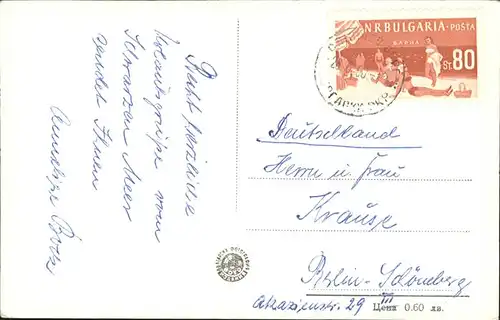 Recht herzliche
Urlaubsgrüße vom
Schwarzen Meer
sendet Ihnen
Annelise Bock
N R BULGARIA - POSTA
VARNA
St. 80
Deutschland
Herrn u. Frau
Krause
Berlin-Schöneberg
Akazienstr. 29 III
Цена 0.60 лв.